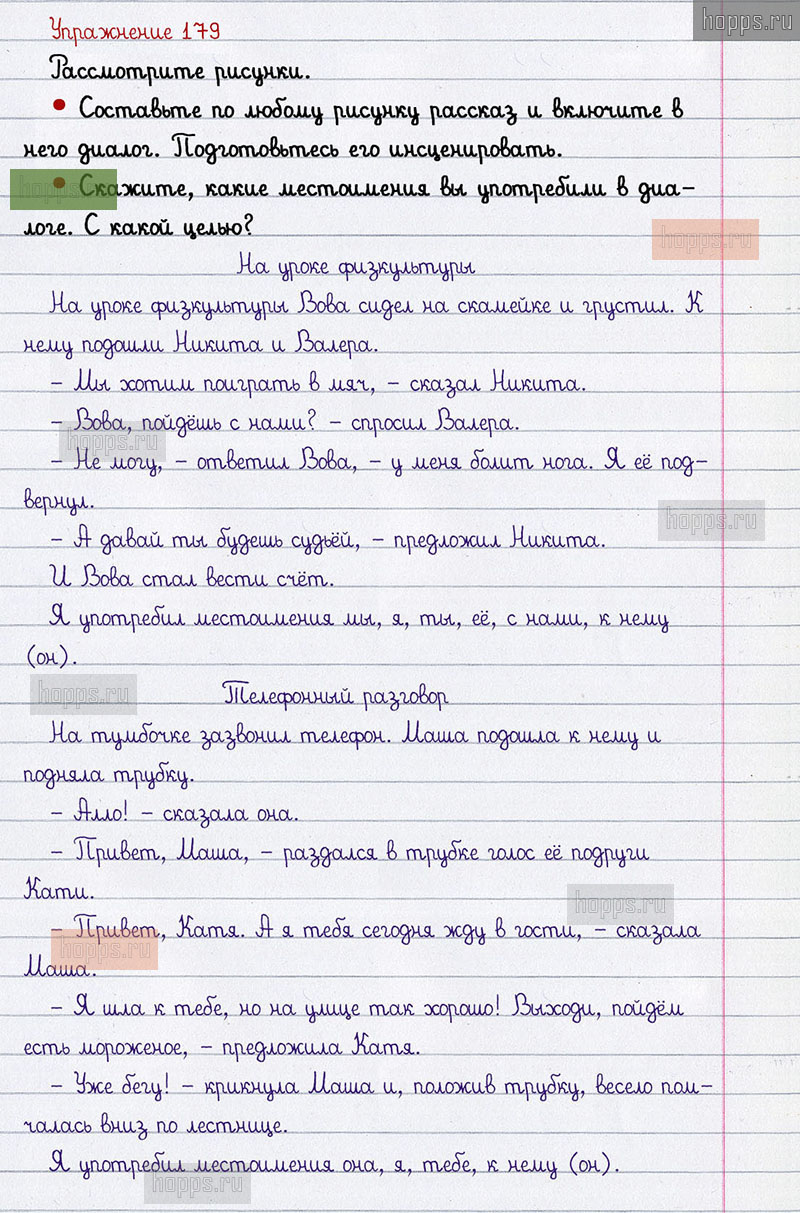 hopps.ru
Упражнение 179
Рассмотрите рисунки.
• Составьте по любому рисунку рассказ и включите в
него диалог. Подготовьтесь его инсценировать.
hopps.ru
• Скажите, какие местоимения вы употребили в диа-
логе. С какой целью?
hopps.ru
На уроке физкультуры
На уроке физкультуры Вова сидел на скамейке и грустил. К
нему подошли Никита и Валера.
– Мы хотим поиграть в мяч, – сказал Никита.
– Вова, пойдёшь с нами? – спросил Валера.
hopps.ru
– Не могу, – ответил Вова, – у меня болит нога. Я её под-
вернул.
hopps.ru
– А давай ты будешь судьёй, – предложил Никита.
И Вова стал вести счёт.
Я употребил местоимения мы, я, ты, её, с нами, к нему
(он).
hopps.ru
Телефонный разговор
На тумбочке зазвонил телефон. Маша подошла к нему и
подняла трубку.
– Алло! – сказала она.
– Привет, Маша, – раздался в трубке голос её подруги
Кати.
hopps.ru
– Привет, Катя. А я тебя сегодня жду в гости, – сказала
hopps.ru
Маша.
– Я шла к тебе, но на улице так хорошо! Выходи, пойдём
есть мороженое, – предложила Катя.
– Уже бегу! – крикнула Маша и, положив трубку, весело пом-
чалась вниз по лестнице.
Я употребил местоимения она, я, тебе, к нему (он).
hopps.ru